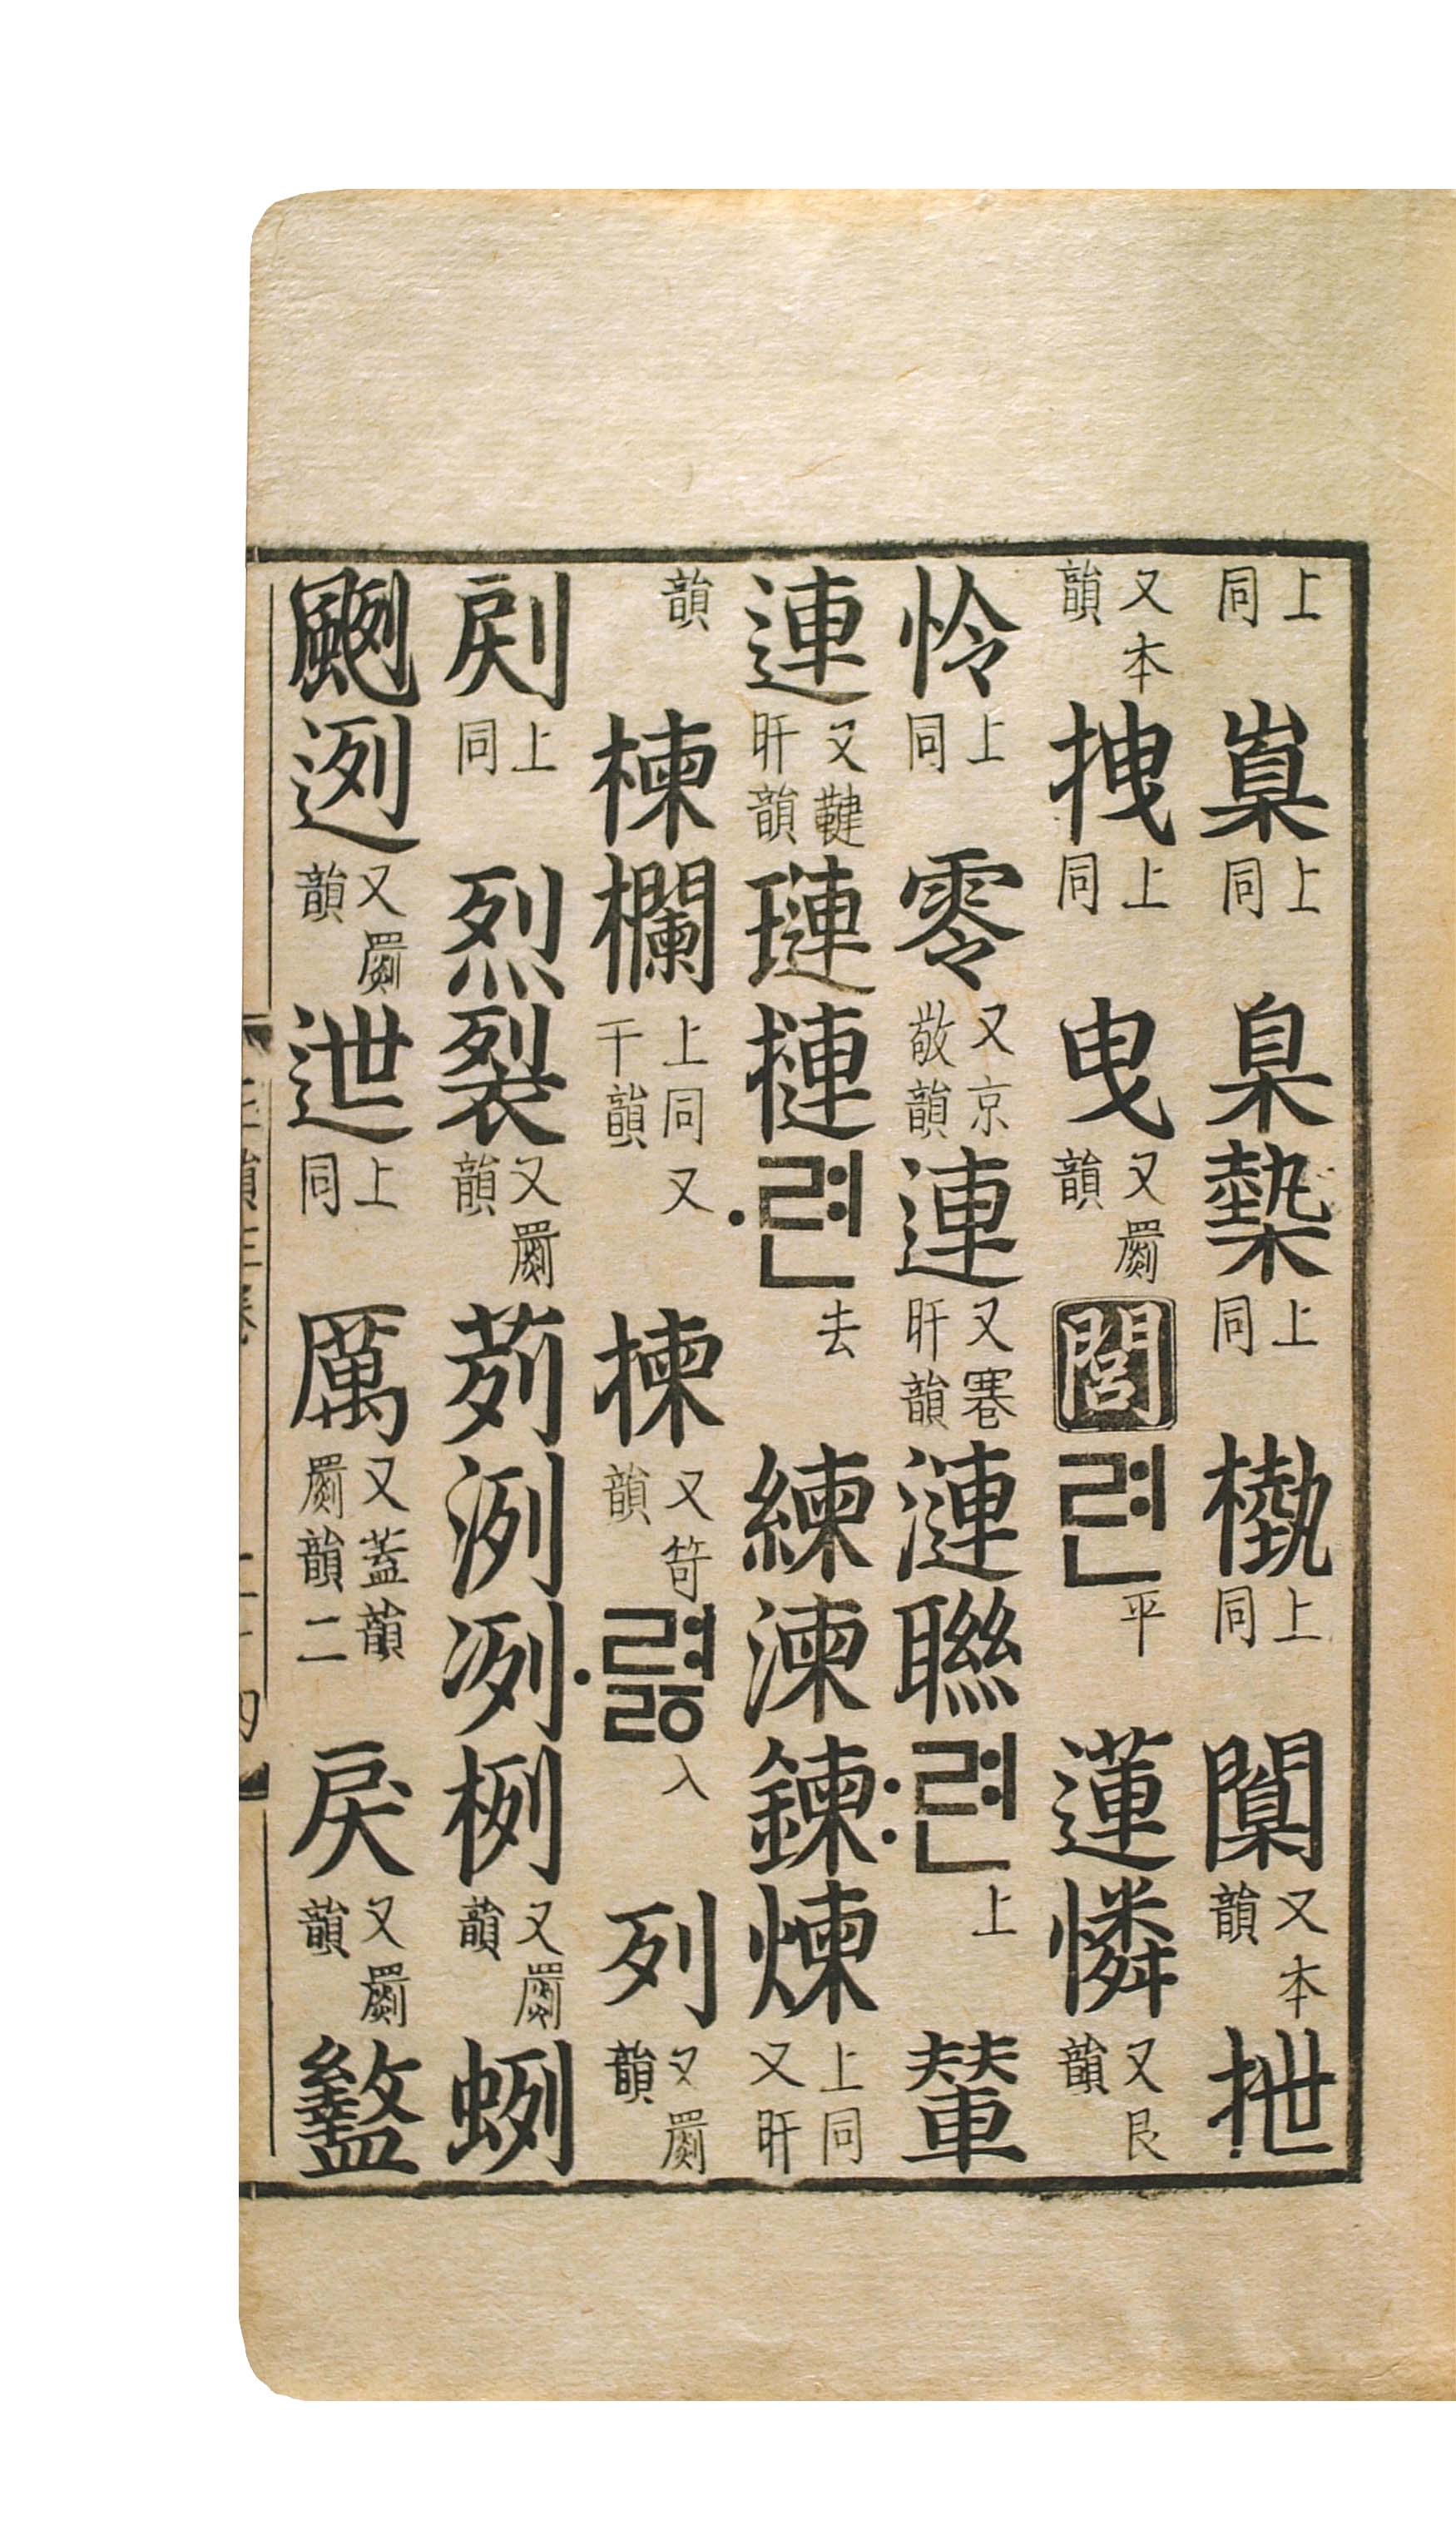 上同 㮆 上同 臬 槷 上同 㙯 上同 闑 又本韻 抴
又本韻 拽 上同 曳 又罽韻 閭 련 平 蓮 憐 又艮韻
怜 上同 零 又京敬韻 連 又寋旰韻 漣 聯 :련 上 輦
連 又鞬旰韻 璉 槤 ·련 去 練 湅 鍊 煉 上同又旰
韻 楝 欄 上同又干韻 揀 又笴韻 ·렳 入 列 又罽韻
㓼 上同 烈 裂 又罽韻 茢 洌 冽 栵 又罽韻 蛚
颲 迾 又罽韻 迣 上同 厲 又蓋韻罽韻二 戾 又罽韻 盭